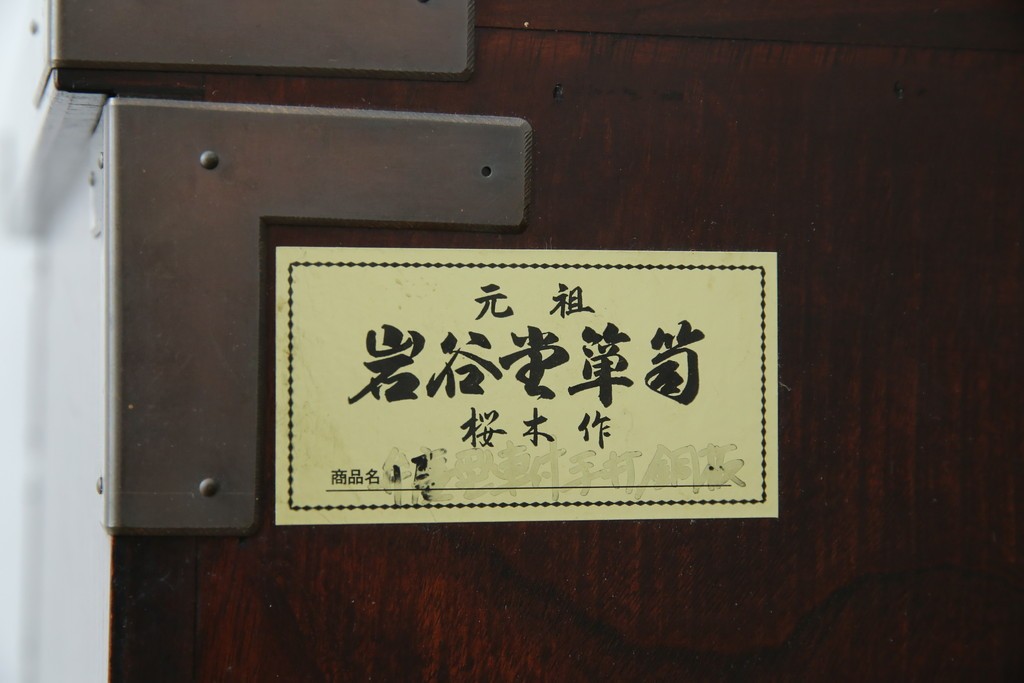 元祖
岩谷堂箪笥
桜木作
商品名